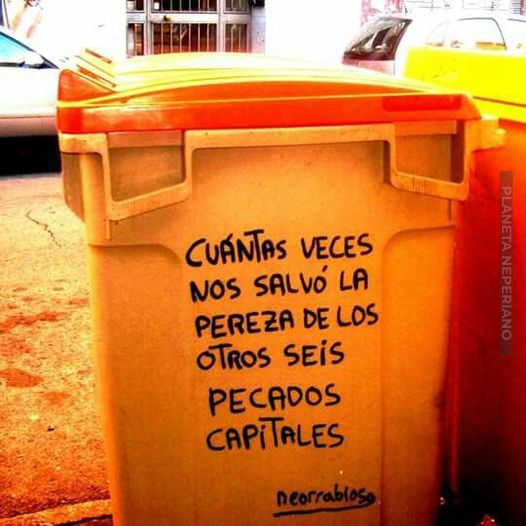 CUÁNTAS VECES
NOS SALVÓ LA
PEREZA DE LOS
OTROS SEIS
PECADOS
CAPITALES
neorrabioso
PLANETA NEPERIANO